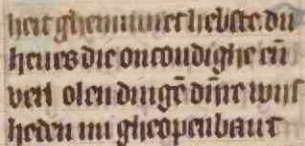 heit ghemiinet hebste. du
heues die onkondighe en̄
dinge dine wijs
heden mi gheopenbaert